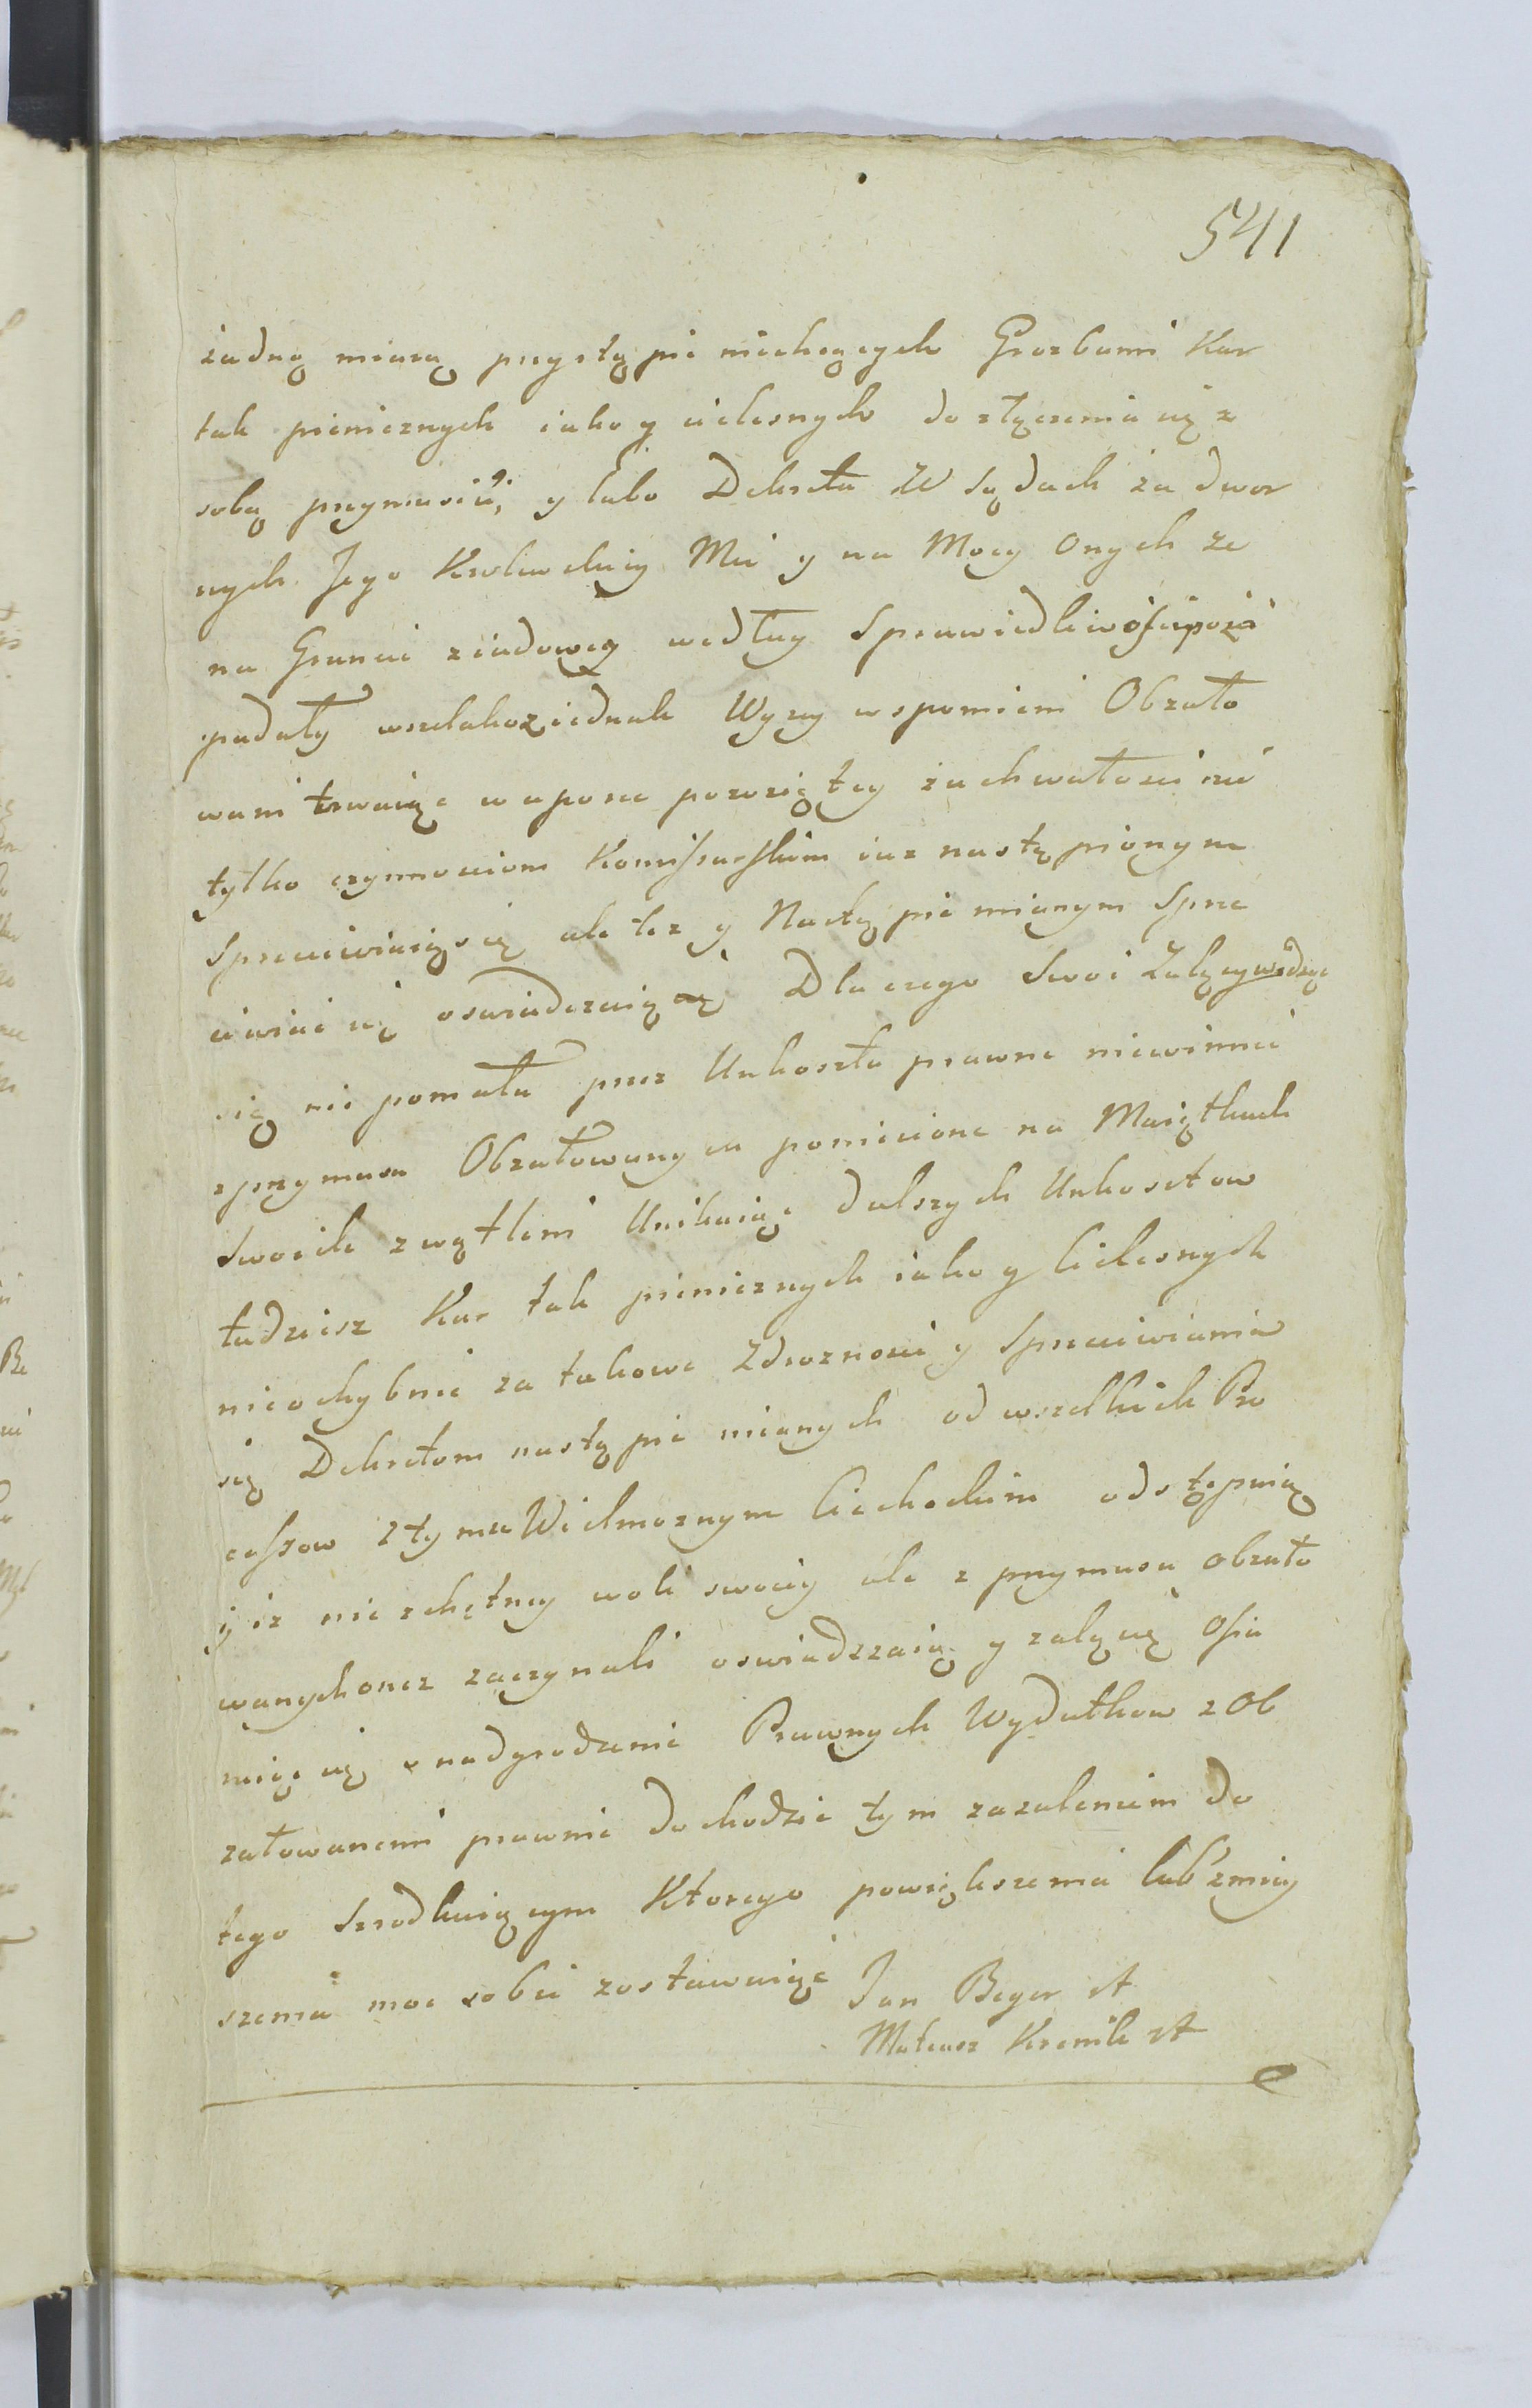 541
zadną miarą przystąpić niechcących Grozbami Kar
tak pieniecznych iako y cielesnych do złączenia się z
sobą przymusili, y lubo Dekreta W Sądach zadwor
nych Jego Krolewskiey Mci y na Mocy Onych ze
na Gruncie ziadowey według Sprawiedliwości poza
padały wszelakoz iednak Wyzey wspomieni Obzało
wani trwaiąc w uporze powziętey zuchwałosci nie
tylko czynnosciom Komissarskim iuz nastąpionym
Sprzeciwiaią się ale tez y Nastąpić mianym Sprze
ciwiać się oswiadczaią się Dla czego Swoi Zalący widząc
się nie pomału przez Unkoszta prawne niewinnie
z przymusu Obzałowanych poniesione na Maiątkach
Swoich zwątleni Unikaiąc dalszych Unkosztow
tudziesz Kar tak pieniecznych iako y Cielesnych
nieochybnie za takowe Zdroznosci y Sprzeciwiania
się Dekretom nastąpić mianych od wszelkich Pro
cessow z tymze Wielmoznym Ciechockim odstępuią
y iz nie z chętney woli swoiey ale z przymusu obzało
wanych onez zaczynali oswiadczaią y zalą się Ofia
ruiąc się o nadgrodzenie Prawnych Wydatkow z Ob
załowanemi prawnie dochodzić tym zazaleniem do
tego Srzodkuiącym Ktorego powiększenia lub zmniey
szenia moc sobie zostawuiąc Jan Beger A
Mateusz Kremik A